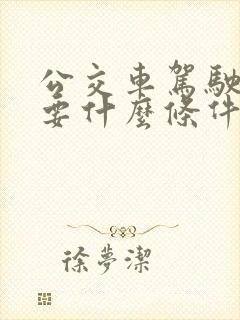 公交車駕駛
要什麼條件
徐夢潔